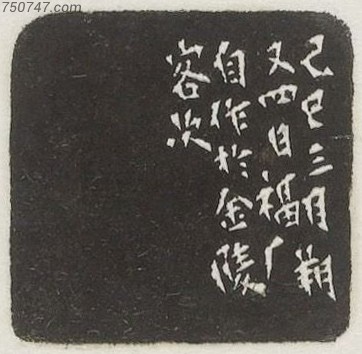 750747.com
己巳三月朔
又四日福厂
自作於金陵
客次